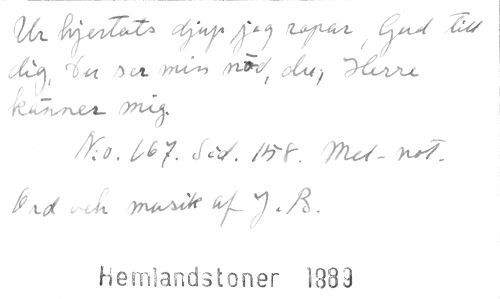 Ur hjertats djup jag ropar, Gud till
dig, Du ser min nöd, du, Herre
känner mig.
No. 167. Sid. 158. Med not.
Ord och musik af J. B.
Hemlandstoner 1889